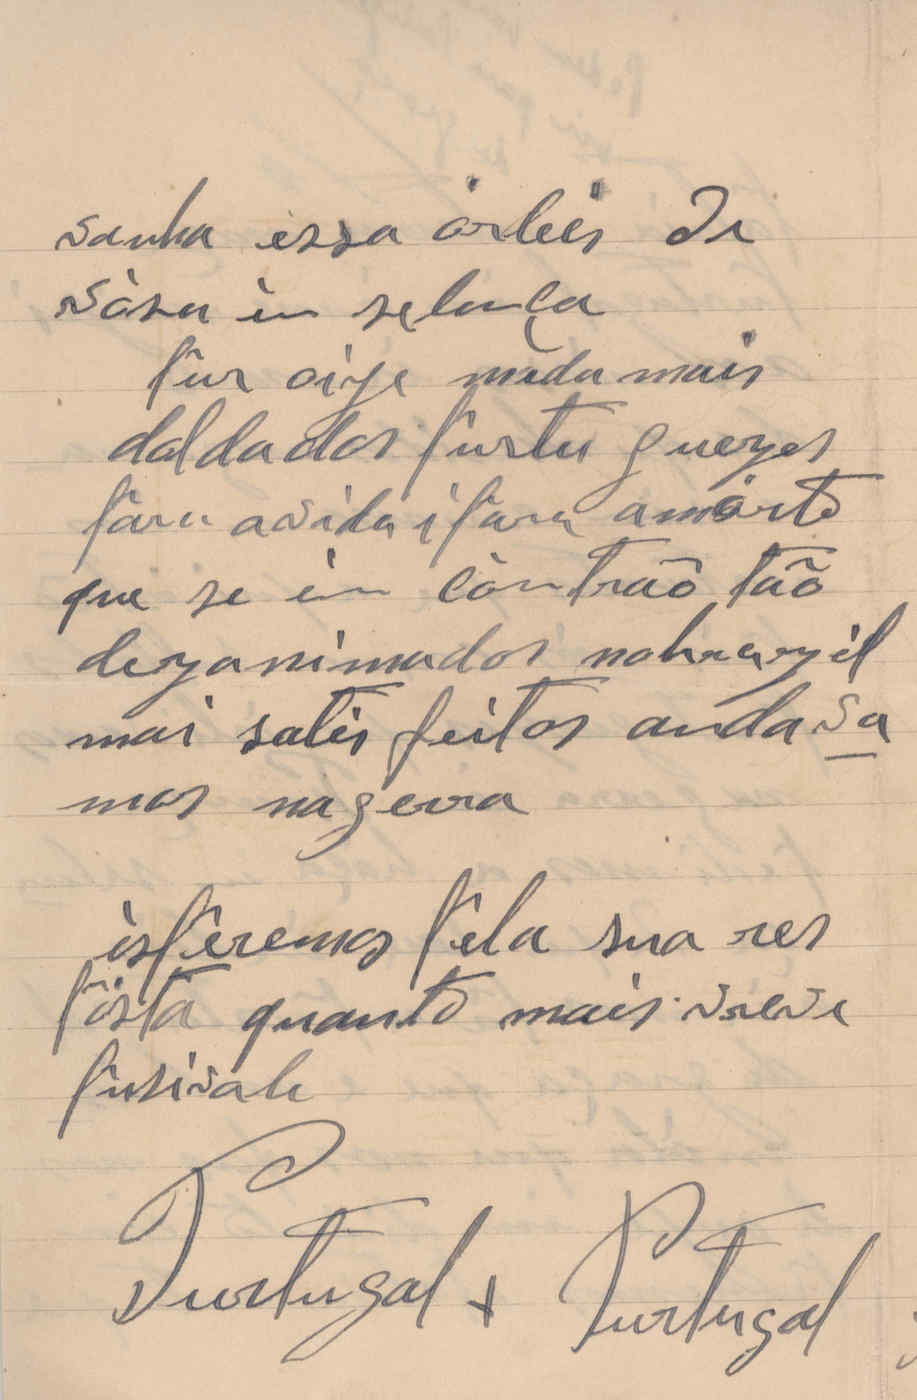 sanha essa órdeis de
vósa in selença
pur oije náda mais
daldados purtu guezes
pára avida i para amórto
que se in contraõ taõ
dezanimados nobrazil
mai satis feitos andava
mos nagerra
ispéremos péla sua res
pósta quanto mais vreve
pusivale
Purtugal + Purtugal